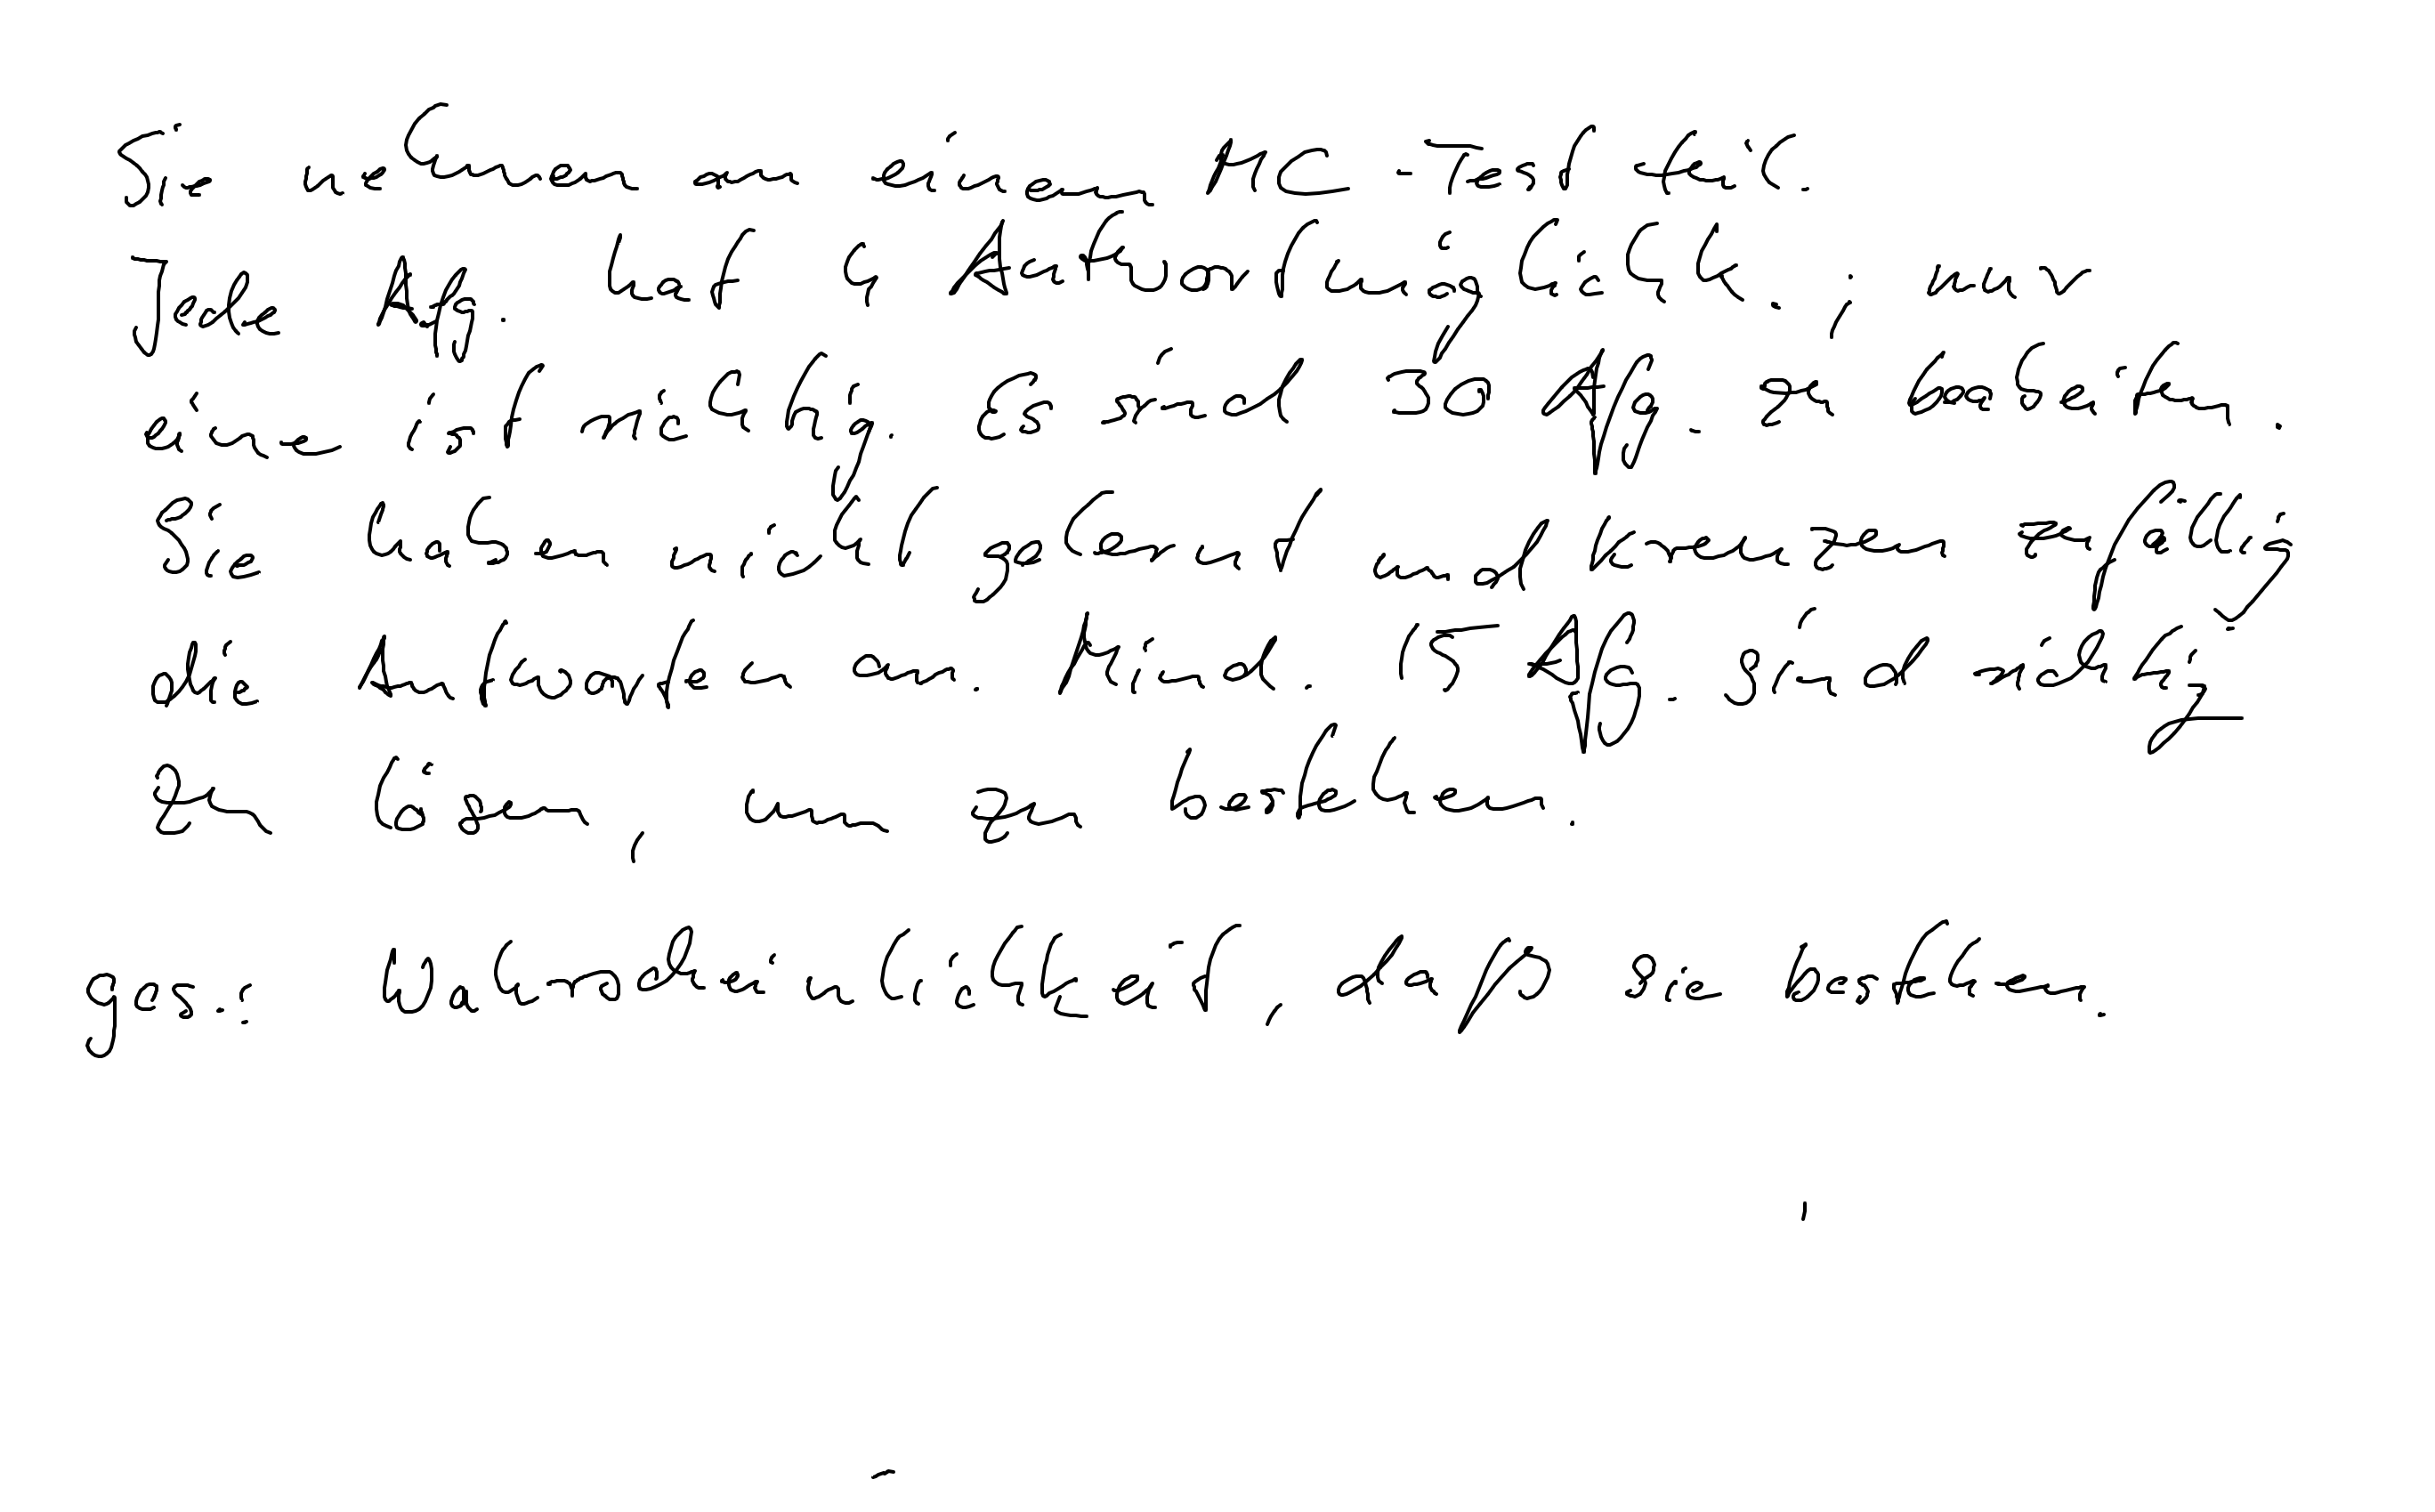 Sie nehmen an einem MC-Test teil.
Jede Afg. hat 4 Antwortmöglichk.; nur
eine ist richtig. Es sind 30 Afg. zu bearbeiten.
Sie haben nicht gelernt und kreuzen zufällig
die Antworten an. Mind. 15 Afg. sind richtig
zu lösen, um zu bestehen.
ges.: Wahrscheinlichkeit, daß sie bestehen.